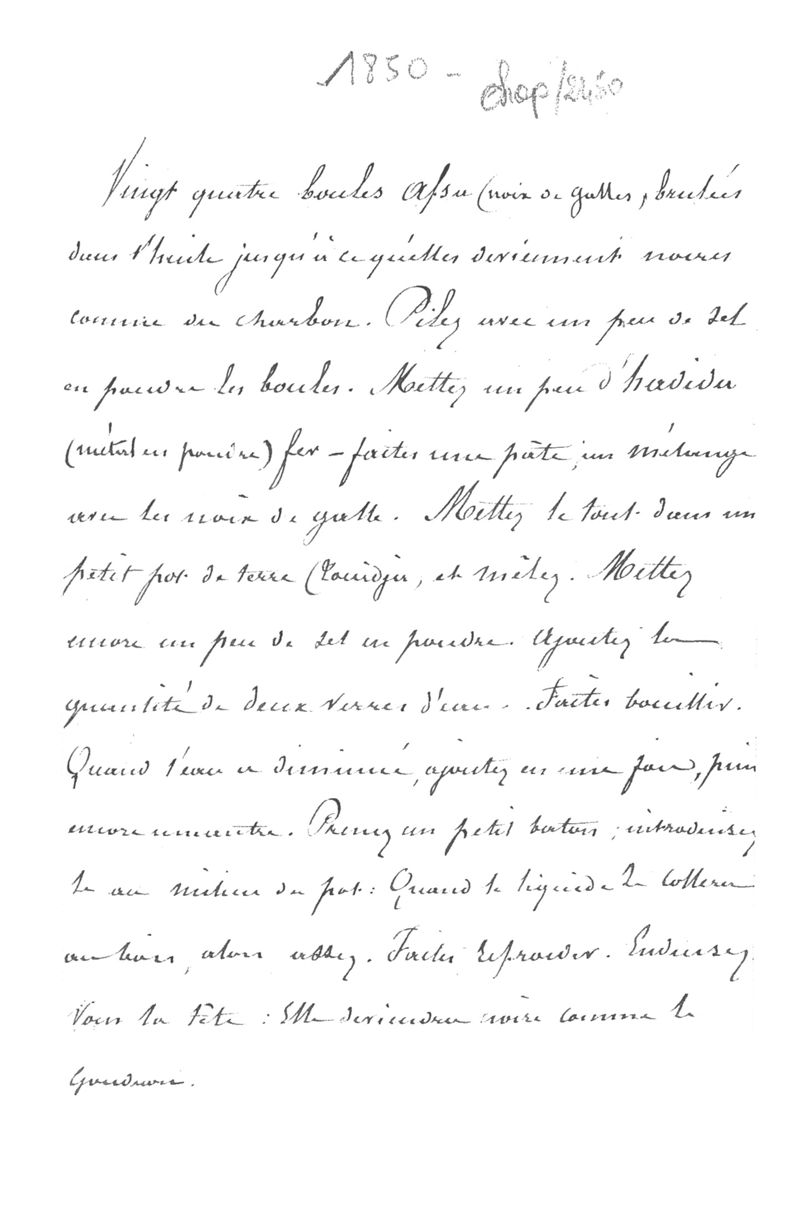 1850 - chap/2450
Vingt quatre boules Afsa (noix de galles, brulées
dans l'huile jusqu'à ce qu'elles deviennent noires
comme du charbon. Pilez avec un peu de sel
en poudre les boules. Mettez un peu d'hadida
(métal en poudre) fer - faites une pâte, un mélange
avec les noix de galle. Mettez le tout dans un
petit pot de terre (, et mêlez. Mettez
encore un peu de sel en poudre. Ajoutez la
quantité de deux verres d'eau. Faites bouillir.
Quand l'eau a diminué, ajoutez en une fois, puis
encore une autre. Prenez un petit baton, introduisez
le au milieu du pot : Quand le liquide se collera
au bois, alors assez. Faites refroidir. Enduisez
vous la tête : Elle deviendra noire comme le
goudron.